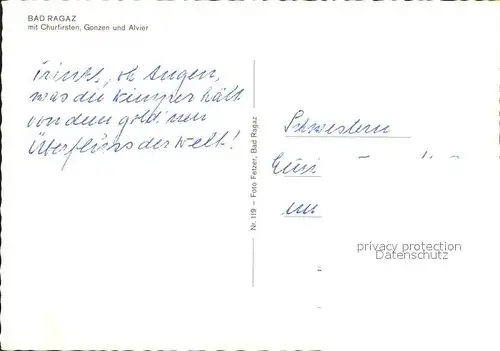 BAD RAGAZ
mit Churfirsten, Gonzen und Alvier
Trinkt, oh Augen,
was die Wimper hält
von dem gold'nen
Überfluss der Welt!
Nr. 119 – Foto Fetzer, Bad Ragaz
Schwestern
privacy protection
Datenschutz